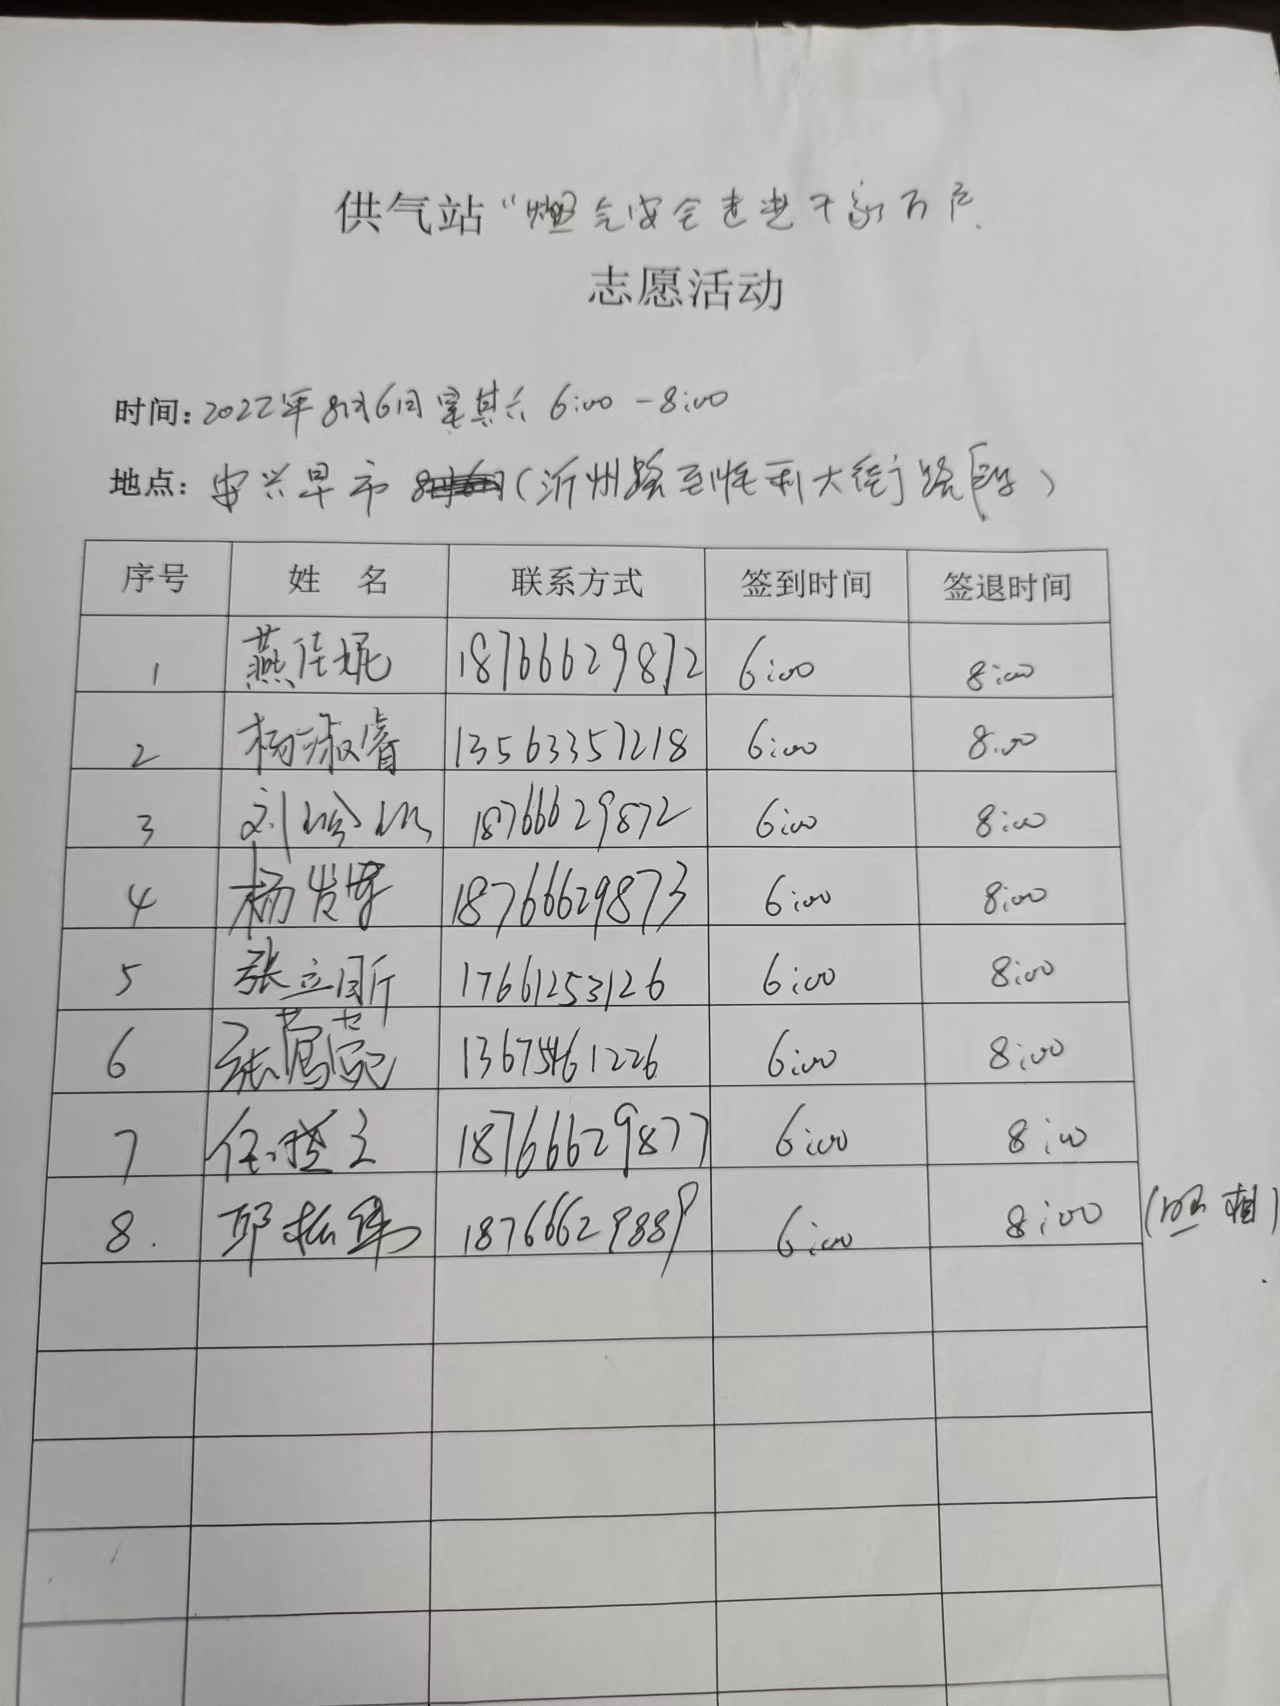 供气站“燃气安全走进千家万户
志愿活动
时间：2022年8月6日星期六 6:00-8:00
地点：安兴早市（沂州路至胜利大街路段）
序号 姓 名 联系方式 签到时间 签退时间
1 燕佳妮 18766629872 6:00 8:00
2 杨淑睿 13563357218 6:00 8:00
3 刘 18766629872 6:00 8:00
4 杨发 18766629873 6:00 8:00
5 张立 17661253126 6:00 8:00
6 张 1367 461226 6:00 8:00
7 任 18766629877 6:00 8:00
8. 振伟 18766629889 6:00 8:00 (照相)